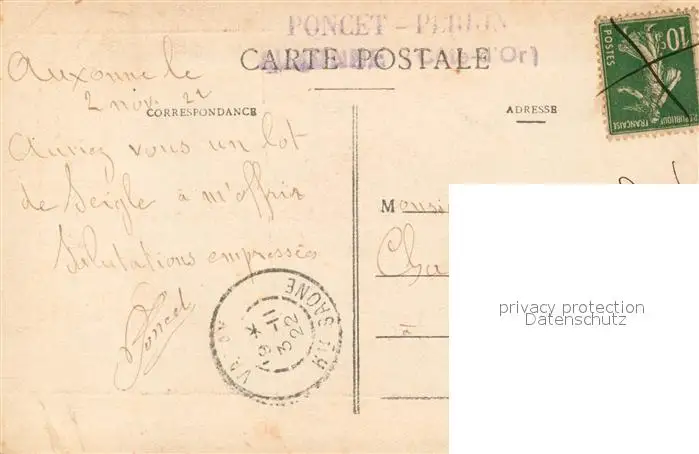 PONCET - PERRIN
CARTE POSTALE
(Côte-d'Or)
Auxonne le
2 nov. 22
CORRESPONDANCE
ADRESSE
Auriez vous un lot
de Seigle à m'offrir
Salutations empressées
Poncet
Monsi
Cha
à
19 *
3 -11
22
SAONE
10c
POSTES
REPUBLIQUE FRANÇAISE
privacy protection
Datenschutz